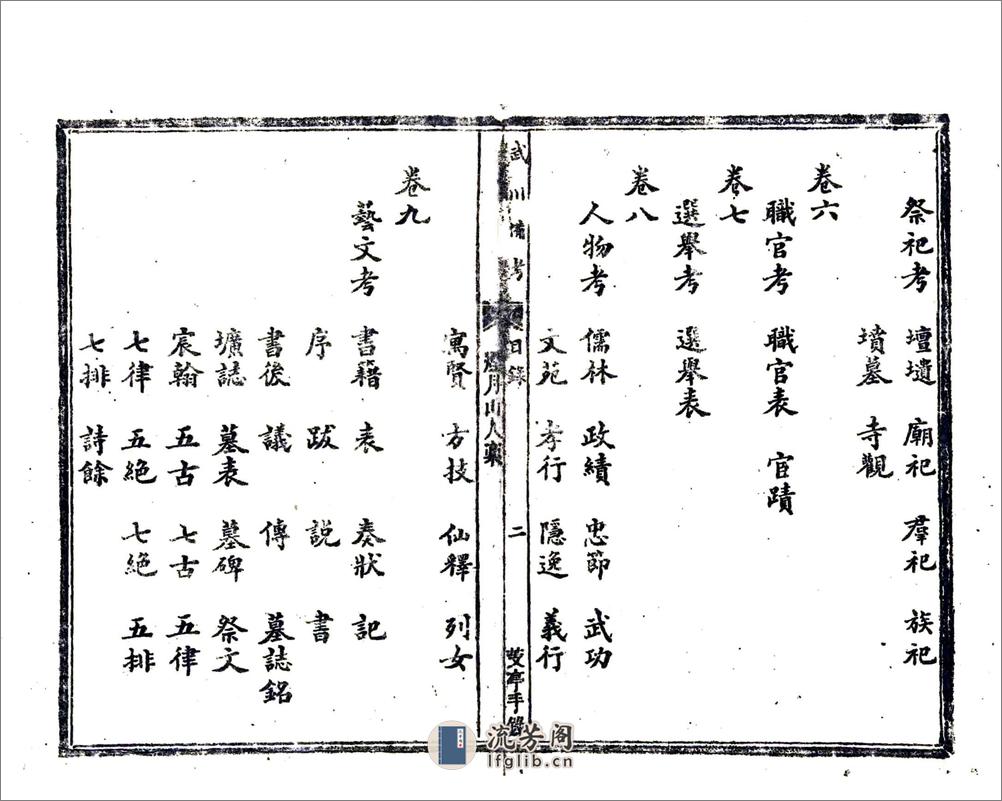 祭祀考 壇壝 廟祀 羣祀 族祀
墳墓 寺觀
卷六
職官考 職官表 宦蹟
卷七
選舉考 選舉表
卷八
人物考 儒林 政績 忠節 武功
文苑 孝行 隱逸 義行
武川備考 目錄 二
月山人稾
雙亭手錄
寓賢 方技 仙釋 列女
卷九
藝文考 書籍 表 奏狀 記
序 跋 說 書
書後 議 傳 墓誌銘
壙誌 墓表 墓碑 祭文
宸翰 五古 七古 五律
七律 五絕 七絕 五排
七排 詩餘
流芳阁
lfglib.cn